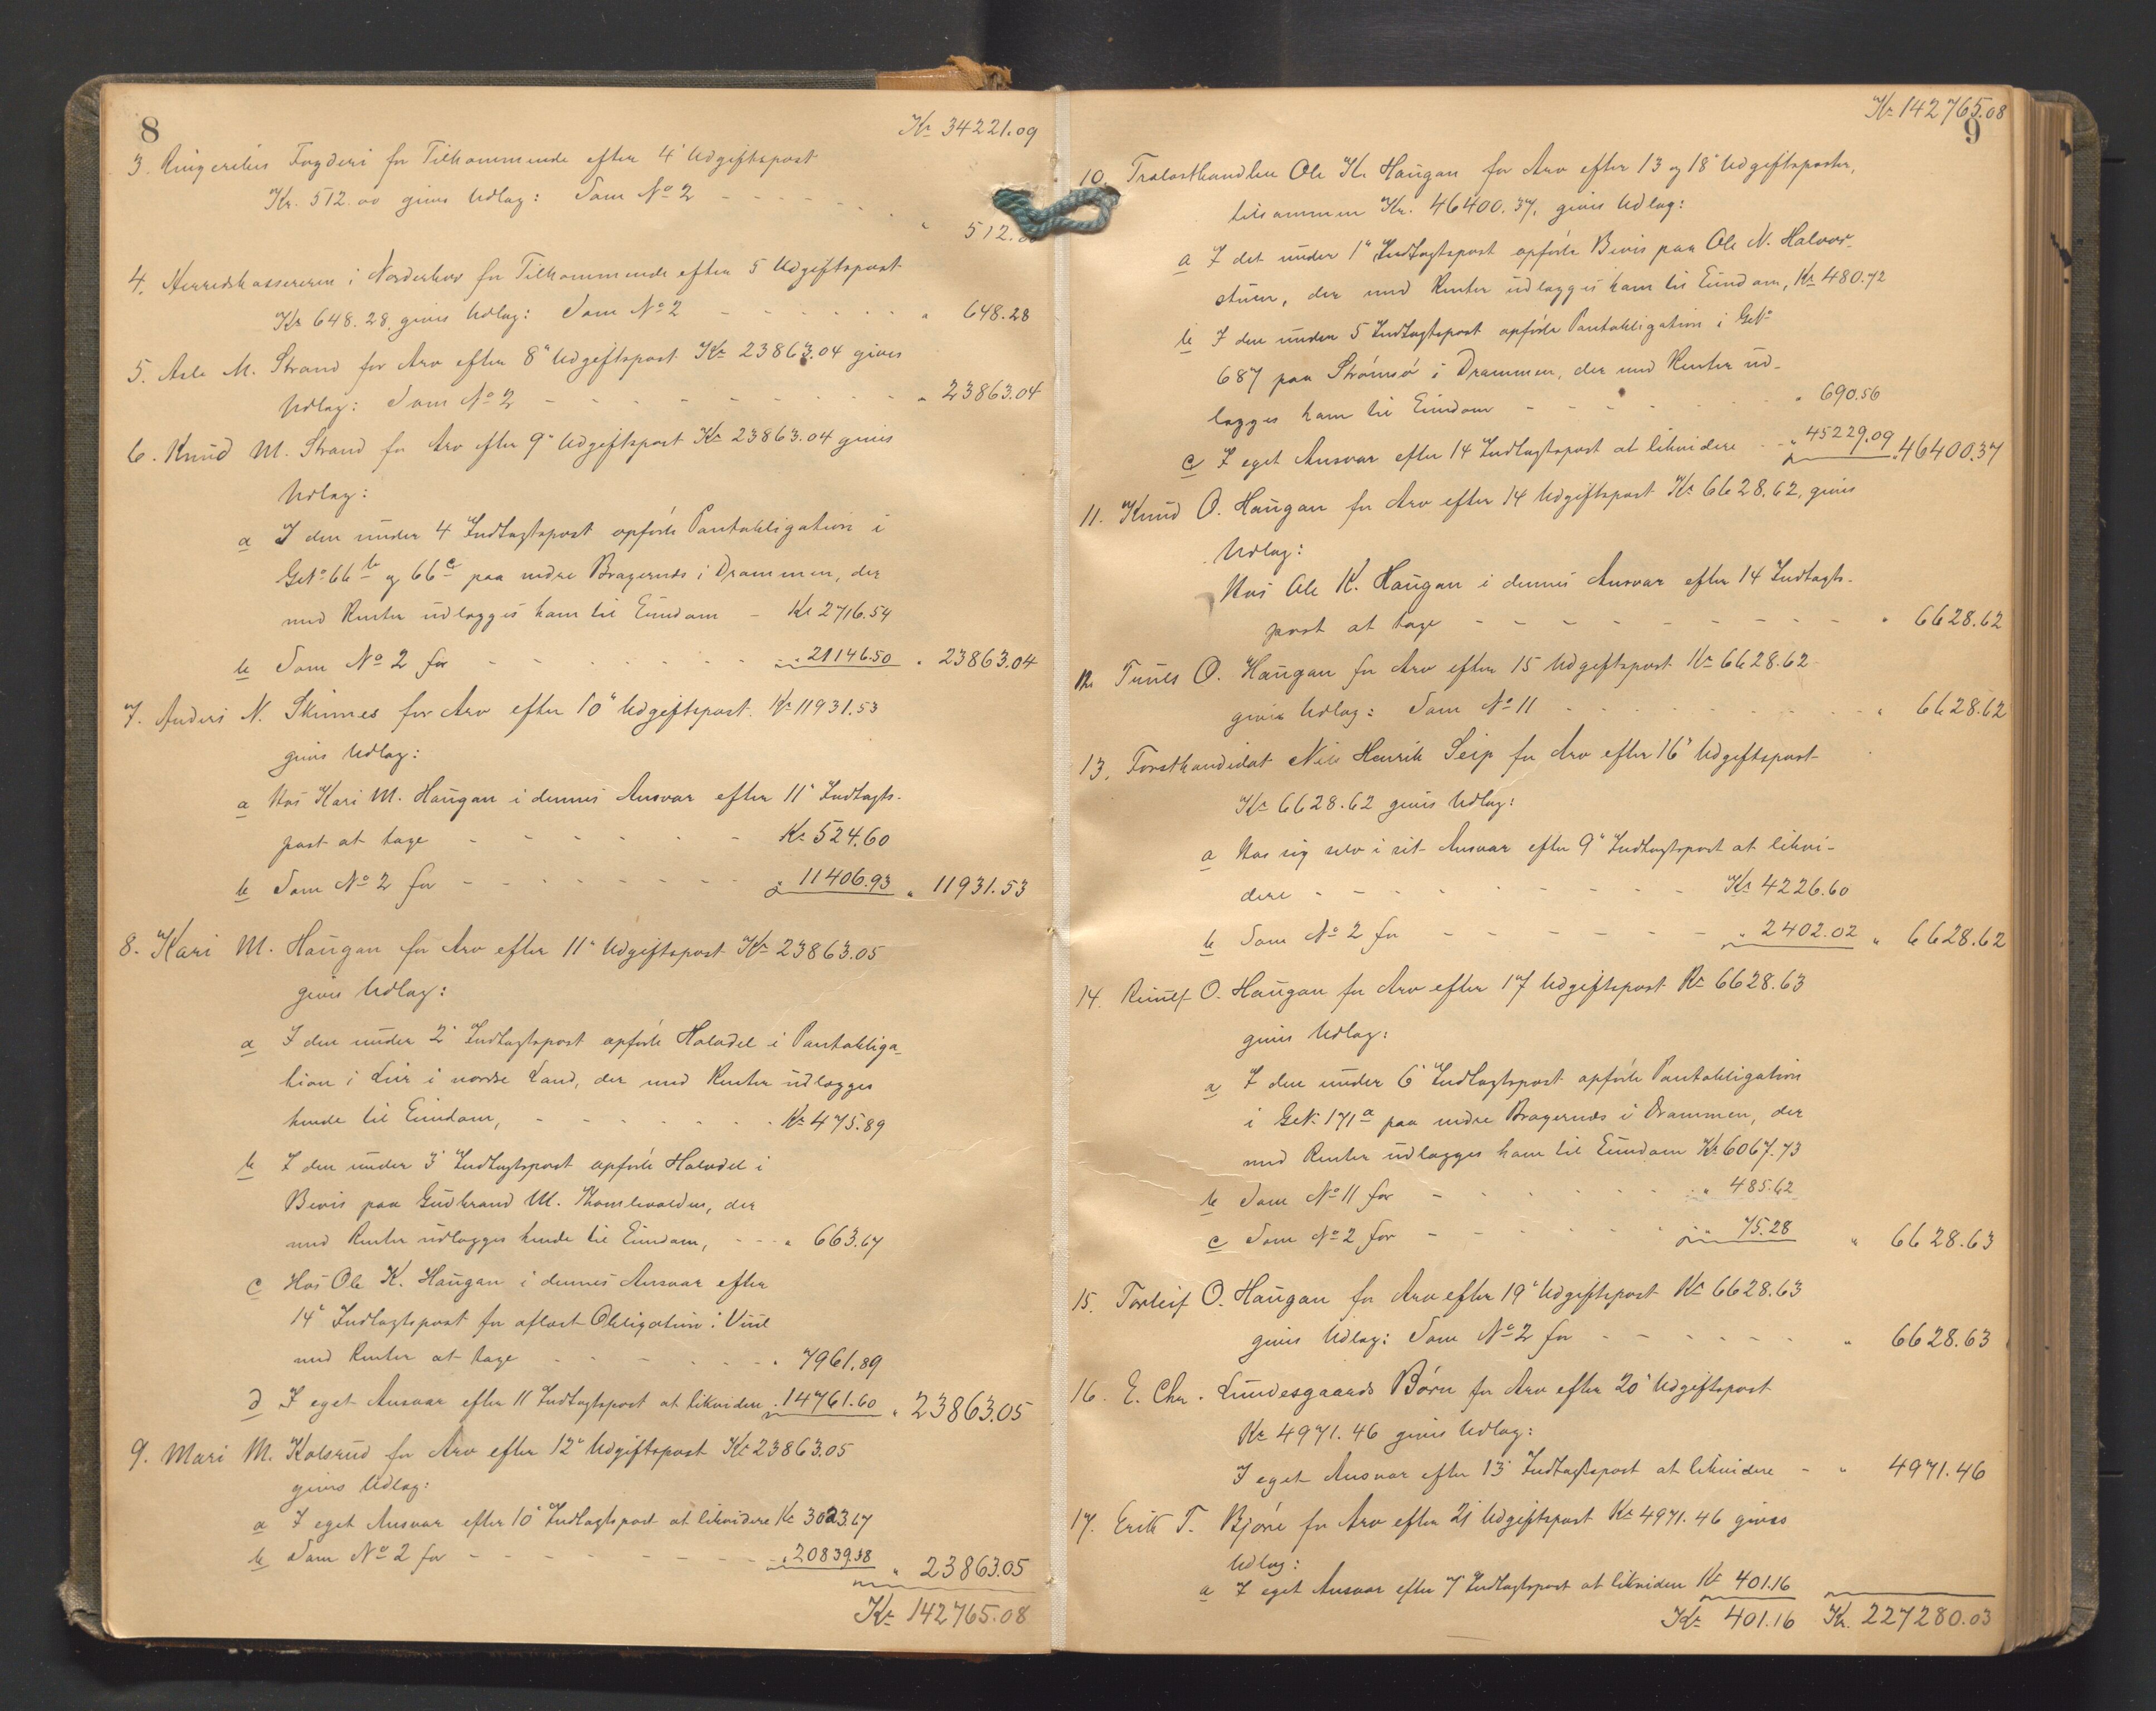 8
Kr. 34221.09
3. Ringerikes Fogderi for Tilkommende efter 4' Udgiftspost
Kr. 512.00 gives Udlæg: Som No 2 - - - - - - " 512.00
4. Herredskassereren i Norderhov for Tilkommende efter 5 Udgiftspost
Kr 648.28, gives Udlæg: Som No 2 - - - - - - " 648.28
5. Asle M. Strand for Arv efter 8' Udgiftspost Kr 23863.04 gives
Udlæg: Som No 2 - - - - - - - - " 23863.04
6. Knud M. Strand for Arv efter 9' Udgiftspost Kr 23863.04 gives
Udlæg:
a I den under 4 Indtægtspost opførte Pantobligation i
GrNo 66b og 66c paa nedre Bragernæs i Drammen, der
med Renter udlægges ham til Eiendom - Kr 2716.54
b Som No 2 for - - - - - - " 21146.50 " 23863.04
7. Anders N. Skinnes for Arv efter 10' Udgiftspost. Kr 11931.53
gives Udlæg:
a Hos Kari M. Haugan i dennes Ansvar efter 11' Indtægts-
post at tage - - - - - - Kr. 524.60
b Som No 2 for - - - - - - - " 11406.93 " 11931.53
8. Kari M. Haugan for Arv efter 11' Udgiftspost Kr 23863.05
gives Udlæg:
a I den under 2' Indtægtspost opførte Halvdel i Pantobliga-
tion i Lier i nordre Land, der med Renter udlægges
hende til Eiendom, - - - - - - Kr 475.89
b I den under 3' Indtægtspost opførte Halvdel i
Bevis paa Gudbrand M. der
med Renter udlægges hende til Eiendom, - - - " 663.67
c Hos Ole K. Haugan i dennes Ansvar efter
14' Indtægtspost for aflæst Obligation i
med Renter at tage - - - - - - " 7961.89
d I eget Ansvar efter 11 Indtægtspost at likvidere " 14761.60 " 23863.05
9. Mari M. Kolsrud for Arv efter 12' Udgiftspost Kr 23863.05
gives Udlæg:
a I eget Ansvar efter 10' Indtægtspost at likvidere Kr 3023.67
b Som No 2 for - - - - - - - " 20839.38 " 23863.05
Kr. 142765.08
Kr. 142765.08
9
10. Trælasthandler Ole K. Haugan for Arv efter 13 og 18' Udgiftsposter,
tilsammen Kr. 46400.37, gives Udlæg:
a I det under 1' Indtægtspost opførte Bevis paa Ole N. Halvor-
stuen, der med Renter udlægges ham til Eiendom, Kr 480.72
b I den under 5 Indtægtspost opførte Pantobligation i GrNo
687 paa Strømsø i Drammen, der med Renter ud-
lægges ham til Eiendom - - - - - " 690.56
c I eget Ansvar efter 14 Indtægtspost at likvidere - " 45229.09 " 46400.37
11. Knud O. Haugan for Arv efter 14 Udgiftspost Kr 6628.62, gives
Udlæg:
Hos Ole K. Haugan i dennes Ansvar efter 14 Indtægts-
post at tage - - - - - - - - " 6628.62
12. O. Haugan for Arv efter 15 Udgiftspost Kr 6628.62
gives Udlæg: Som No 11 - - - - - - - " 6628.62
13. Forstkandidat Nils Henrik Seip for Arv efter 16' Udgiftspost
Kr 6628.62 gives Udlæg:
a Hos sig selv i sit Ansvar efter 9' Indtægtspost at likvi-
dere - - - - - - - Kr 4226.60
b Som No 2 for - - - - - - " 2402.02 " 6628.62
14. O. Haugan for Arv efter 17 Udgiftspost Kr 6628.63
gives Udlæg:
a I den under 6' Indtægtspost opførte Pantobligation
i GrN. 171a paa nedre Bragernæs i Drammen, der
med Renter udlægges ham til Eiendom Kr 6067.73
b Som No 11 for - - - - - - " 485.62
c Som No 2 for - - - - - " 75.28 " 6628.63
15. Torleif O. Haugan for Arv efter 19' Udgiftspost Kr 6628.63
gives Udlæg: Som No 2 for - - - - - " 6628.63
16. E. Chr. Lundesgaards Børn for Arv efter 20' Udgiftspost
Kr 4971.46 gives Udlæg:
I eget Ansvar efter 13' Indtægtspost at likvidere - " 4971.46
17. Erik T. Bjøre for Arv efter 21 Udgiftspost Kr 4971.46 gives
Udlæg:
a I eget Ansvar efter 7' Indtægtspost at likvidere Kr 401.16
Kr. 401.16 Kr. 227280.03